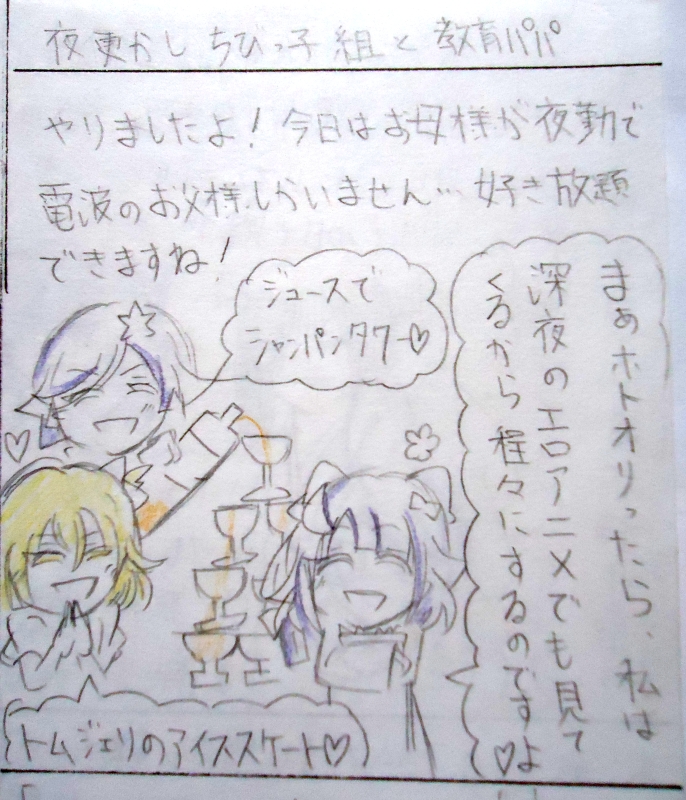 夜更かしちびっ子組と教育パパ
やりましたよ!今日はお母様が夜勤で
電波のお父様しかいません…好き放題
できますね!
ジュースで
シャンパンタワー♡
まぁホトオリったら、私は
深夜のエロアニメでも見て
くるから程々にするのですよ♡
トムジェリのアイススケート♡